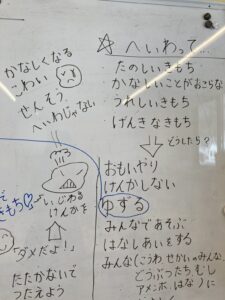 ☆ へいわって...
たのしいきもち
かなしいことがおこらな
うれしいきもち
げんきなきもち
どうしたら?
おもいやり
けんかしない
ゆずる
みんなであそぶ
はなしあいをする
みんな(こうわ せかいのみんな、
どうぶつたち、むし
アメンボ、はな)に
かなしくなる
こわい
せんそう
へいわじゃない
いじわる
けんかを
で
きもち♡
「ダメだよ!」
たたかないで
つたえよう